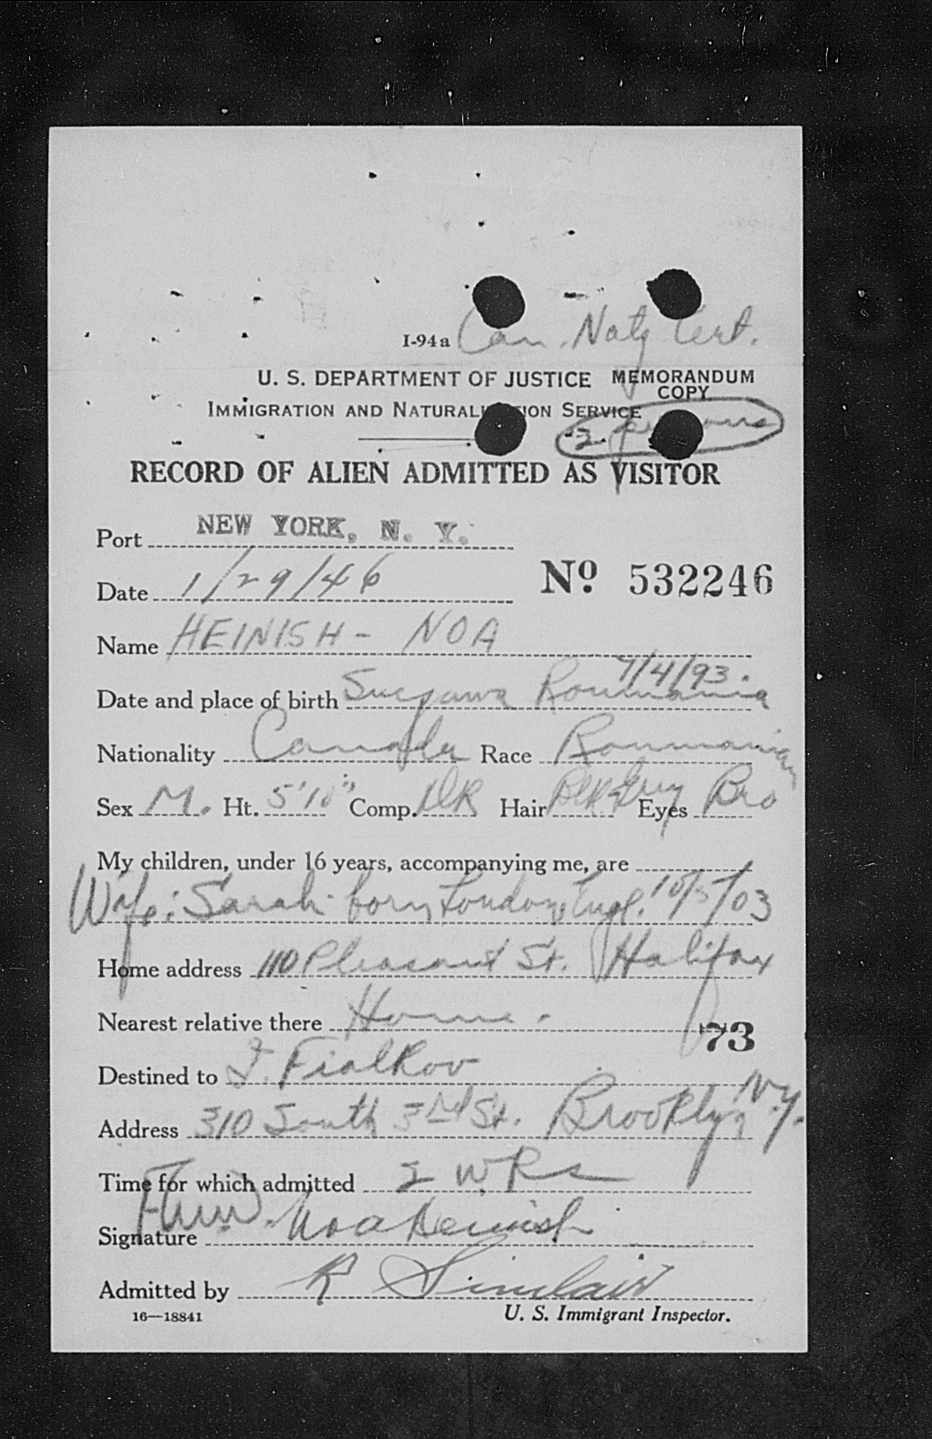 I-94a Can. Natz Cert.
U. S. DEPARTMENT OF JUSTICE MEMORANDUM COPY
IMMIGRATION AND NATURALIZATION SERVICE
2
RECORD OF ALIEN ADMITTED AS VISITOR
Port NEW YORK, N. Y.
Date 1/29/46 No 532246
Name HEINISH - NOA
7/4/93.
Date and place of birth Suczawa Roumania
Nationality Canada Race Roumanian
Sex M. Ht. 5'10" Comp. DK Hair Blk Grey Eyes Bro
My children, under 16 years, accompanying me, are
Wife: Sarah born London, Engl. 10/5/03
Home address 110 Pleasant St. Halifax
Nearest relative there Home.
73
Destined to I. Fialkov
Address 310 South 3rd St. Brooklyn N.Y.
Time for which admitted 2 WKs
Signature Noa Heinish
Admitted by R Sinclair
16—18841 U. S. Immigrant Inspector.